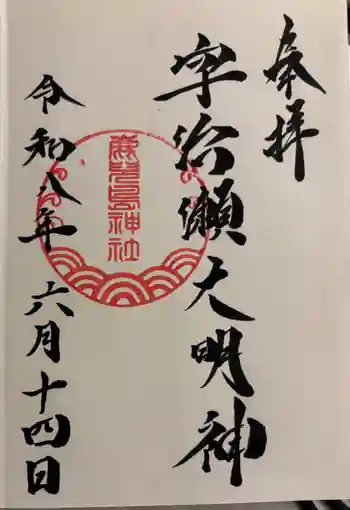 奉拝
宇治瀬大明神
令和八年六月十四日
鹿児島神社